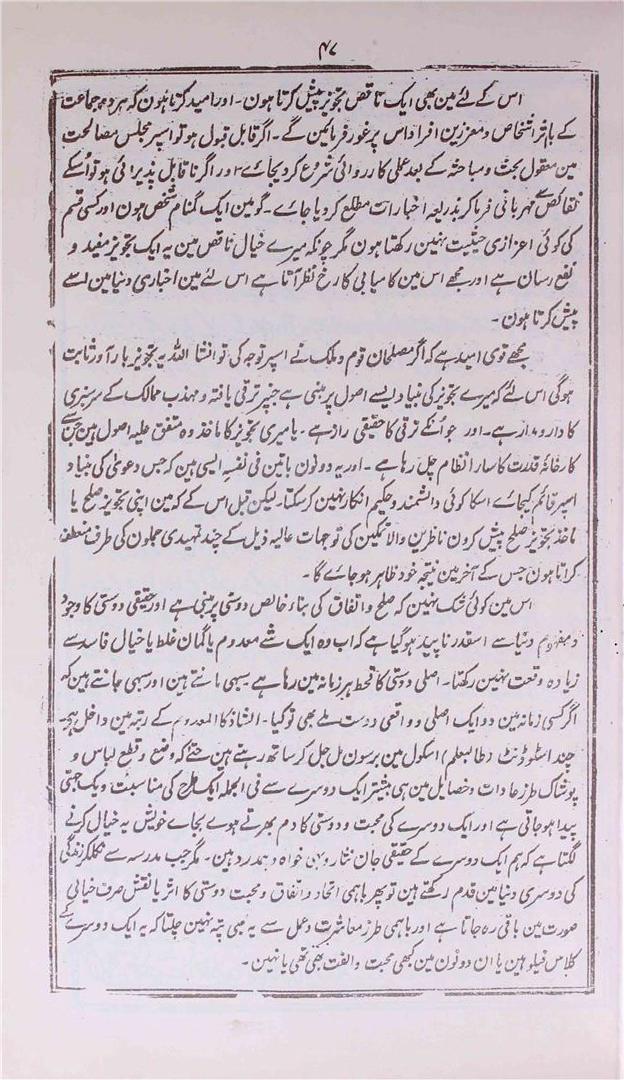 ۴۷
اس کے لئے مین بھی ایک ناقص تجویز پیش کرتا ہون ۔ اور امید کرتا ہون کہ ہر دو جماعت
کے بااثر اشخاص و معززین افراد اس پر غور فرمائین گے ۔ اگر قابل قبول ہو تو اسپر مجلس مصالحت
مین معقول بحث و مباحثہ کے بعد عملی کارروائی شروع کردیجائے اور اگر ناقابل پذیرائی ہو تو اُسکے
نقائص مہربانی فرماکر بذریعہ اخبارات مطلع کردیا جائے ۔ گو مین ایک گمنام شخص ہون اور کسی قسم
کی کوئی اعزازی حیثیت نہین رکھتا ہون مگر چونکہ میرے خیال ناقص مین یہ ایک تجویز مفید و
نفع رسان ہے اور مجھے اس مین کامیابی کا رخ نظر آتا ہے اس لئے مین اخباری دنیا مین اسے
پیش کرتا ہون ۔
مجھے قوی امید ہے کہ اگر مصلحان قوم و ملک نے اسپر توجہ کی تو انشا اللہ یہ تجویز بارآور ثابت
ہوگی اس لئے کہ میرے تجویز کی بنیاد ایسے اصول پر مبنی ہے جنپر ترقی یافتہ و مہذب ممالک کے سرسبزی
کا دارومدار ہے ۔ اور جو اُنکے ترقی کا حقیقی راز ہے ۔ یا میری تجویز کا ماخذ وہ متفق علیہ اصول ہین جن سے
کارخانۂ قدرت کا سارا نظام چل رہا ہے ۔ اور یہ دونون باتین فی نفسہٖ ایسی ہین کہ جس دعویٰ کی بنیاد
اسپر قائم کیجائے اسکا کوئی دانشمند و حکیم انکار نہین کرسکتا ۔ لیکن قبل اس کے کہ مین اپنی تجویز صلح یا
ماخذ تجویز صلح پیش کرون ناظرین والا تمکین کی توجہات عالیہ ذیل کے چند تمہیدی جملون کی طرف منعطف
کراتا ہون جس کے آخر مین نتیجہ خود ظاہر ہو جائے گا ۔
اس مین کوئی شک نہین کہ صلح و اتفاق کی بناء خالص دوستی پر مبنی ہے اور حقیقی دوستی کا وجود
و مفہوم دنیا سے اسقدر ناپید ہوگیا ہے کہ اب وہ ایک شے معدوم یا گمان غلط یا خیال فاسد سے
زیادہ وقعت نہین رکھتا ۔ اصلی دوستی کا قحط ہر زمانہ مین رہا ہے ۔ سبھی مانتے ہین اور سبھی جانتے ہین کہ
اگر کسی زمانہ مین دو ایک اصلی و واقعی دوست ملے بھی تو کیا ۔ الشاذ کالمعدوم کے رتبہ مین داخل ہے
چند اسٹوڈنٹ (طالبعلم) اسکول مین برسون مل جل کر ساتھ رہتے ہین حتےٰ کہ وضع و قطع لباس و
پوشاک طرز عادات و خصایل مین ہی بیشتر ایک دوسرے سے فی الجملہ ایک طرح کی مناسبت و یک جہتی
پیدا ہو جاتی ہے اور ایک دوسرے کی محبت و دوستی کا دم بھرتے ہوے بجاے خویش یہ خیال کرنے
لگتا ہے کہ ہم ایک دوسرے کے حقیقی جان نثار و بہی خواہ و ہمدرد ہین ۔ مگر جب مدرسہ سے نکلکر زندگی
کی دوسری دنیا مین قدم رکھتے ہین تو پھر باہمی اتحاد و اتفاق و محبت دوستی کا اثر یا نقش صرف خیالی
صورت مین باقی رہ جاتا ہے اور باہمی طرز معاشرت و عمل سے یہ بھی پتہ نہین چلتا کہ یہ ایک دوسرے کے
کلاس فیلو ہین یا ان دونون مین کبھی محبت و الفت بھی تھی یا نہین ۔